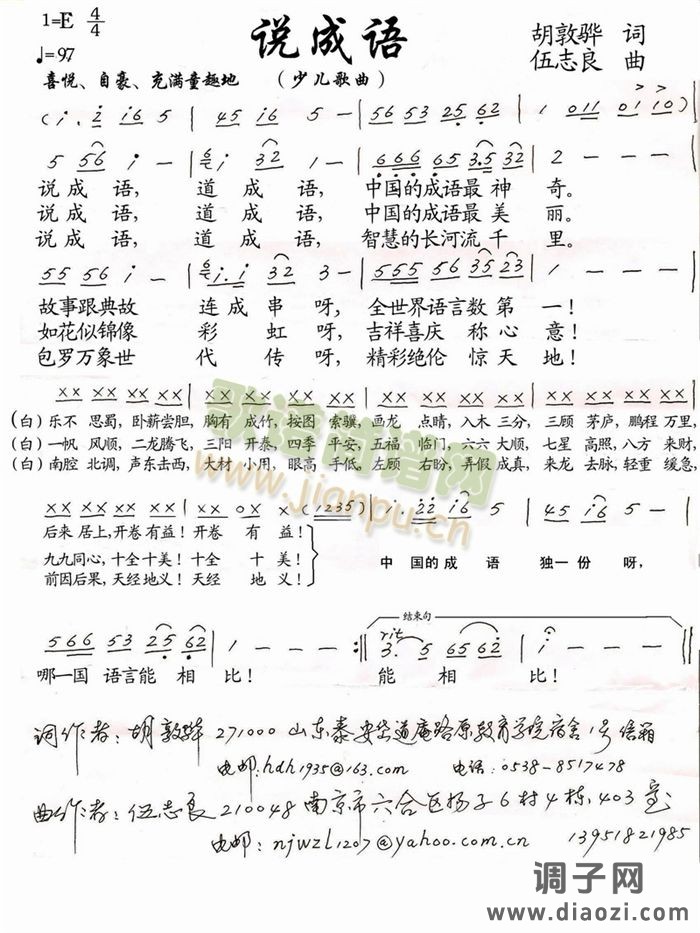 1=E 4/4
♩=97
说成语
胡敦骅 词
伍志良 曲
喜悦、自豪、充满童趣地 （少儿歌曲）
( i . 2 i6 5 | 45 i6 5 - | 56 53 25 62 | 1 011 01 10 )
5 56 i - | 6 i 32 1 - | 666 65 3.5 32 | 2 - - -
说 成 语， 道 成 语， 中国的成语最 神 奇。
说 成 语， 道 成 语， 中国的成语最 美 丽。
说 成 语， 道 成 语， 智慧的长河流 千 里。
55 556 i - | 6 i.i 32 3 - | 555 56 35 23 | 1 - - -
故事跟典故 连 成 串 呀， 全世界语言数 第 一！
如花似锦像 彩 虹 呀， 吉祥喜庆 称 心 意！
包罗万象世 代 传 呀， 精彩绝伦 惊 天 地！
XX XX XX XX | XX XX XX XX | XX XX XX XX | XX XX XX XX
（白）乐不 思蜀，卧薪尝胆，胸有 成竹，按图 索骥，画龙 点睛，入木 三分，三顾 茅庐，鹏程 万里，
（白）一帆 风顺，二龙腾飞，三阳 开泰，四季 平安，五福 临门，六六 大顺，七星 高照，八方 来财，
（白）南腔 北调，声东击西，大材 小用，眼高 手低，左顾 右盼，弄假 成真，来龙 去脉，轻重 缓急，
XX XX XX XX | XX 0X X (1235) | i . 22 i6 5 | 45 i6 5 -
后来 居上，开卷 有益！开卷 有 益！
九九同心，十全 十美！十全 十 美！
前因后果，天经 地义！天经 地 义！
中 国的 成 语 独一 份 呀，
结束句
rit
566 53 25 62 | 1 - - - :‖ 3. 5 65 62 | i - - - ‖
哪一国 语言能 相 比！ 能 相 比！
词作者：胡敦骅 271000 山东泰安岱道庵路原教育学院宿舍1号信箱
电邮：hdh1935@163.com 电话：0538-8517478
曲作者：伍志良 210048 南京市六合区扬子6村4栋，403室
电邮：njwzl1207@yahoo.com.cn 13951821985
歌谱简谱网
www.jianpu.cn
调子网
www.diaozi.com